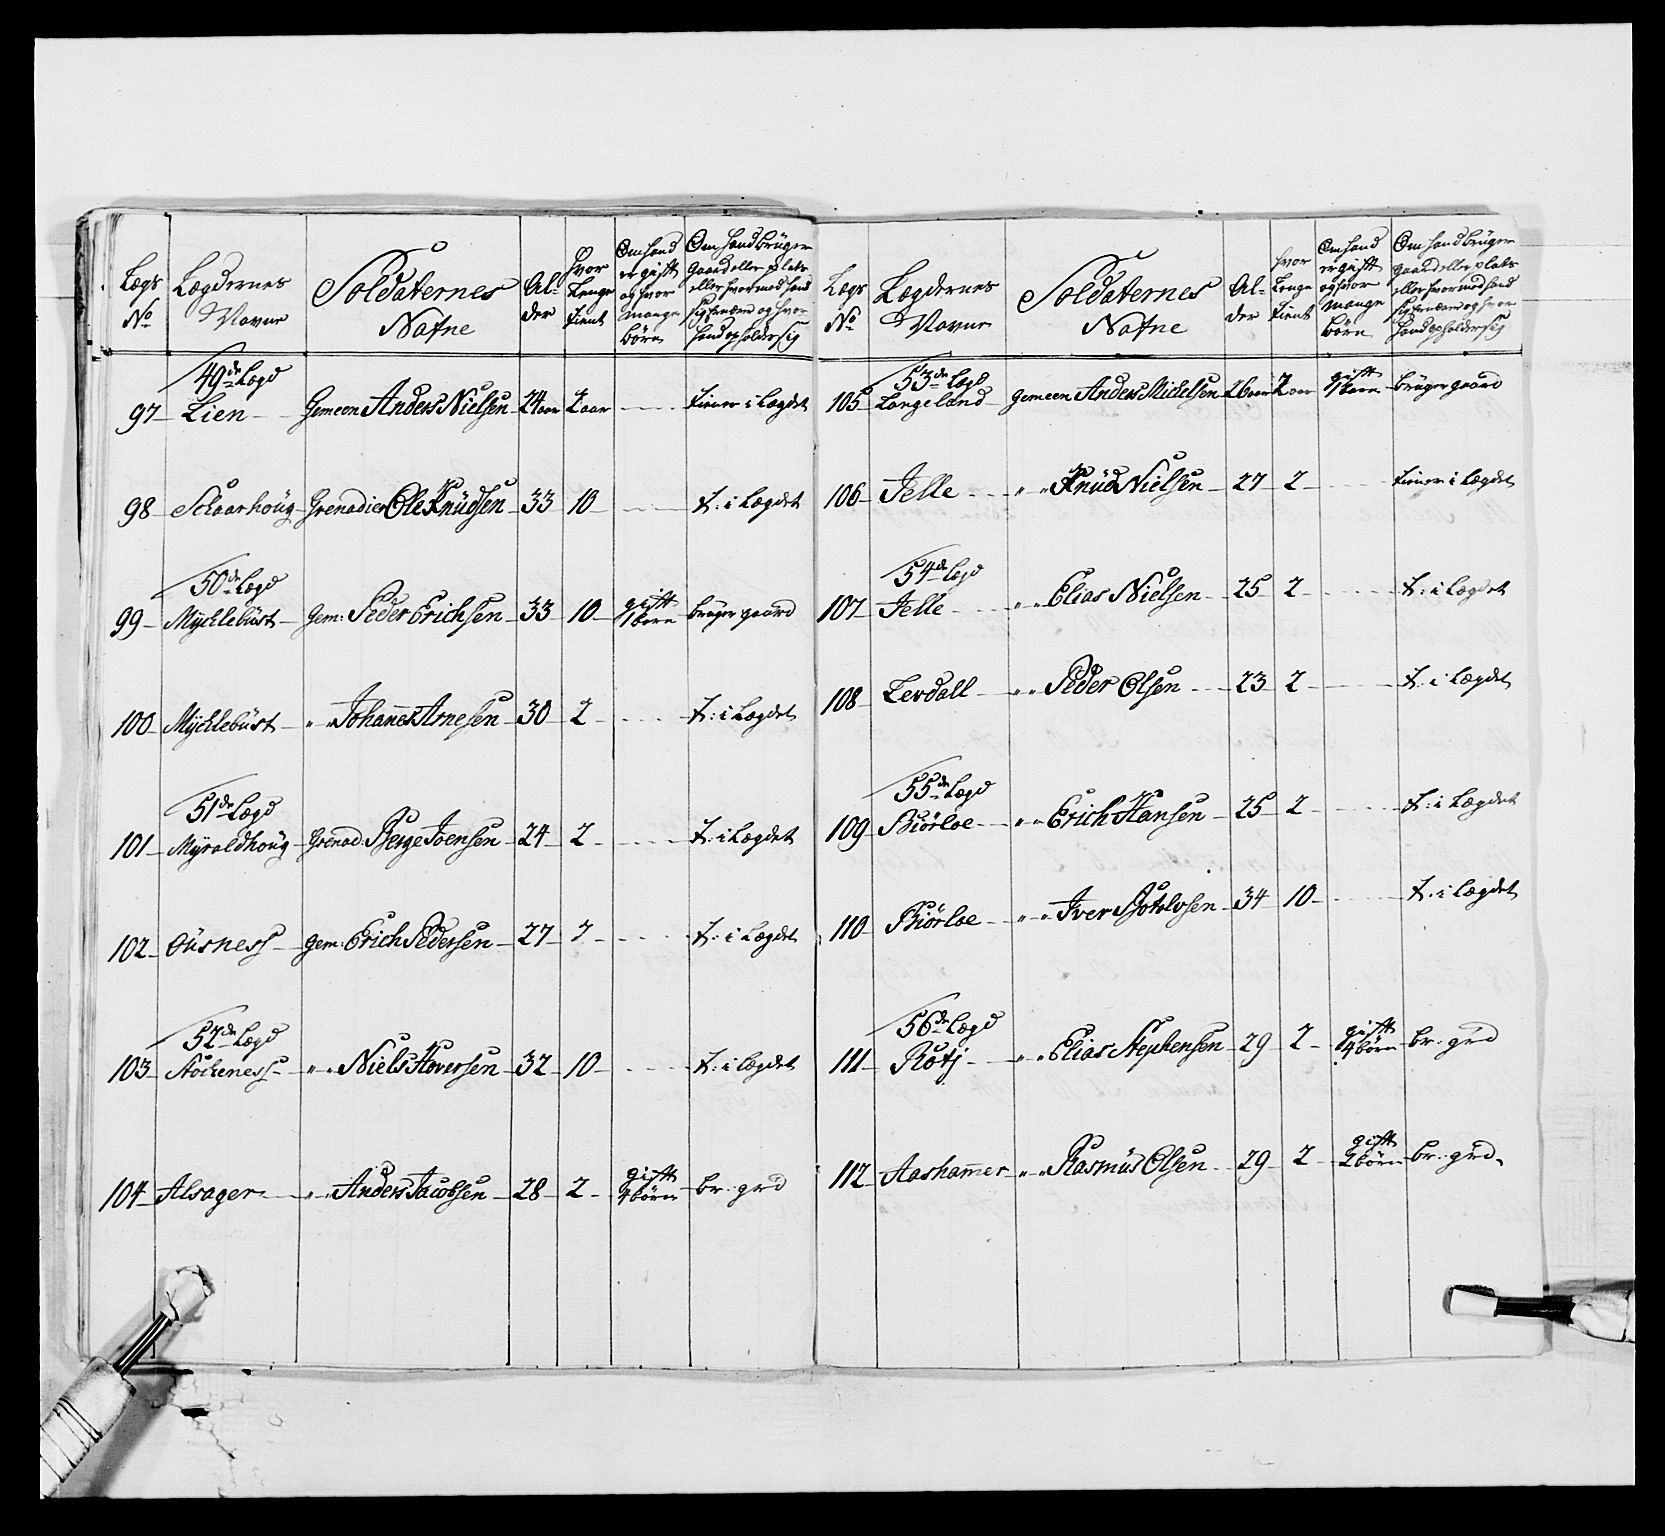 Lægs No
Lægdernes Navne
Soldaternes Nafne
Al- der
hvor Lenge tient
Om hand er gift og hvor mange börn
Om hand brüger gaard eller plads eller hvormed hand sig ernærer og hvor hand opholder sig
49de Lægd
97 Lien Gemeen Anders Nielsen 24 aar 2 aar tiener i Lægdet
98 Schaarhoug Grenadier Ole Knüdsen 33 10 t: i Lægdet
50de Lægd
99 Mycklebüst Gem: Peder Erichsen 33 10 gift 1 barn brüger gaard
100 Mycklebüst " " Johannes Arnesen 30 2 t: i Lægdet
51de Lægd
101 Myroldhoug Grenad: Børge Joensen 24 2 t: i Lægdet
102 Ousness Gem: Erich Pedersen 27 7 t: i Lægdet
52de Lægd
103 Støckeness " " Niels Hoversen 32 10 t: i Lægdet
104 Alsager " " Anders Jacobsen 28 2 gift 4 börn br: grd
Lægs No
Lægdernes Navne
Soldaternes Nafne
Al- der
hvor Lenge tient
Om hand er gift og hvor mange börn
Om hand brüger gaard eller plads eller hvormed hand sig ernærer og hvor hand opholder sig
53de Lægd
105 Langeland Gemeen Anders Michelsen 26 aar 2 aar gift 1 barn brüger gaard
106 Jelle " " Knüd Nielsen 27 2 tiener i Lægdet
54de Lægd
107 Jelle " " Elias Nielsen 25 2 t: i Lægdet
108 Levdall " " Peder Olsen 23 2 t: i Lægdet
55de Lægd
109 Biørloe " " Erich Hansen 25 2 t: i Lægdet
110 Biørloe " " Iver Botolvsen 34 10 t: i Lægdet
56de Lægd
111 Rotj " " Elias Stephensen 29 2 gift 4 börn br: grd
112 Aashamer " " Rasmüs Olsen 29 2 gift 2 börn br: grd